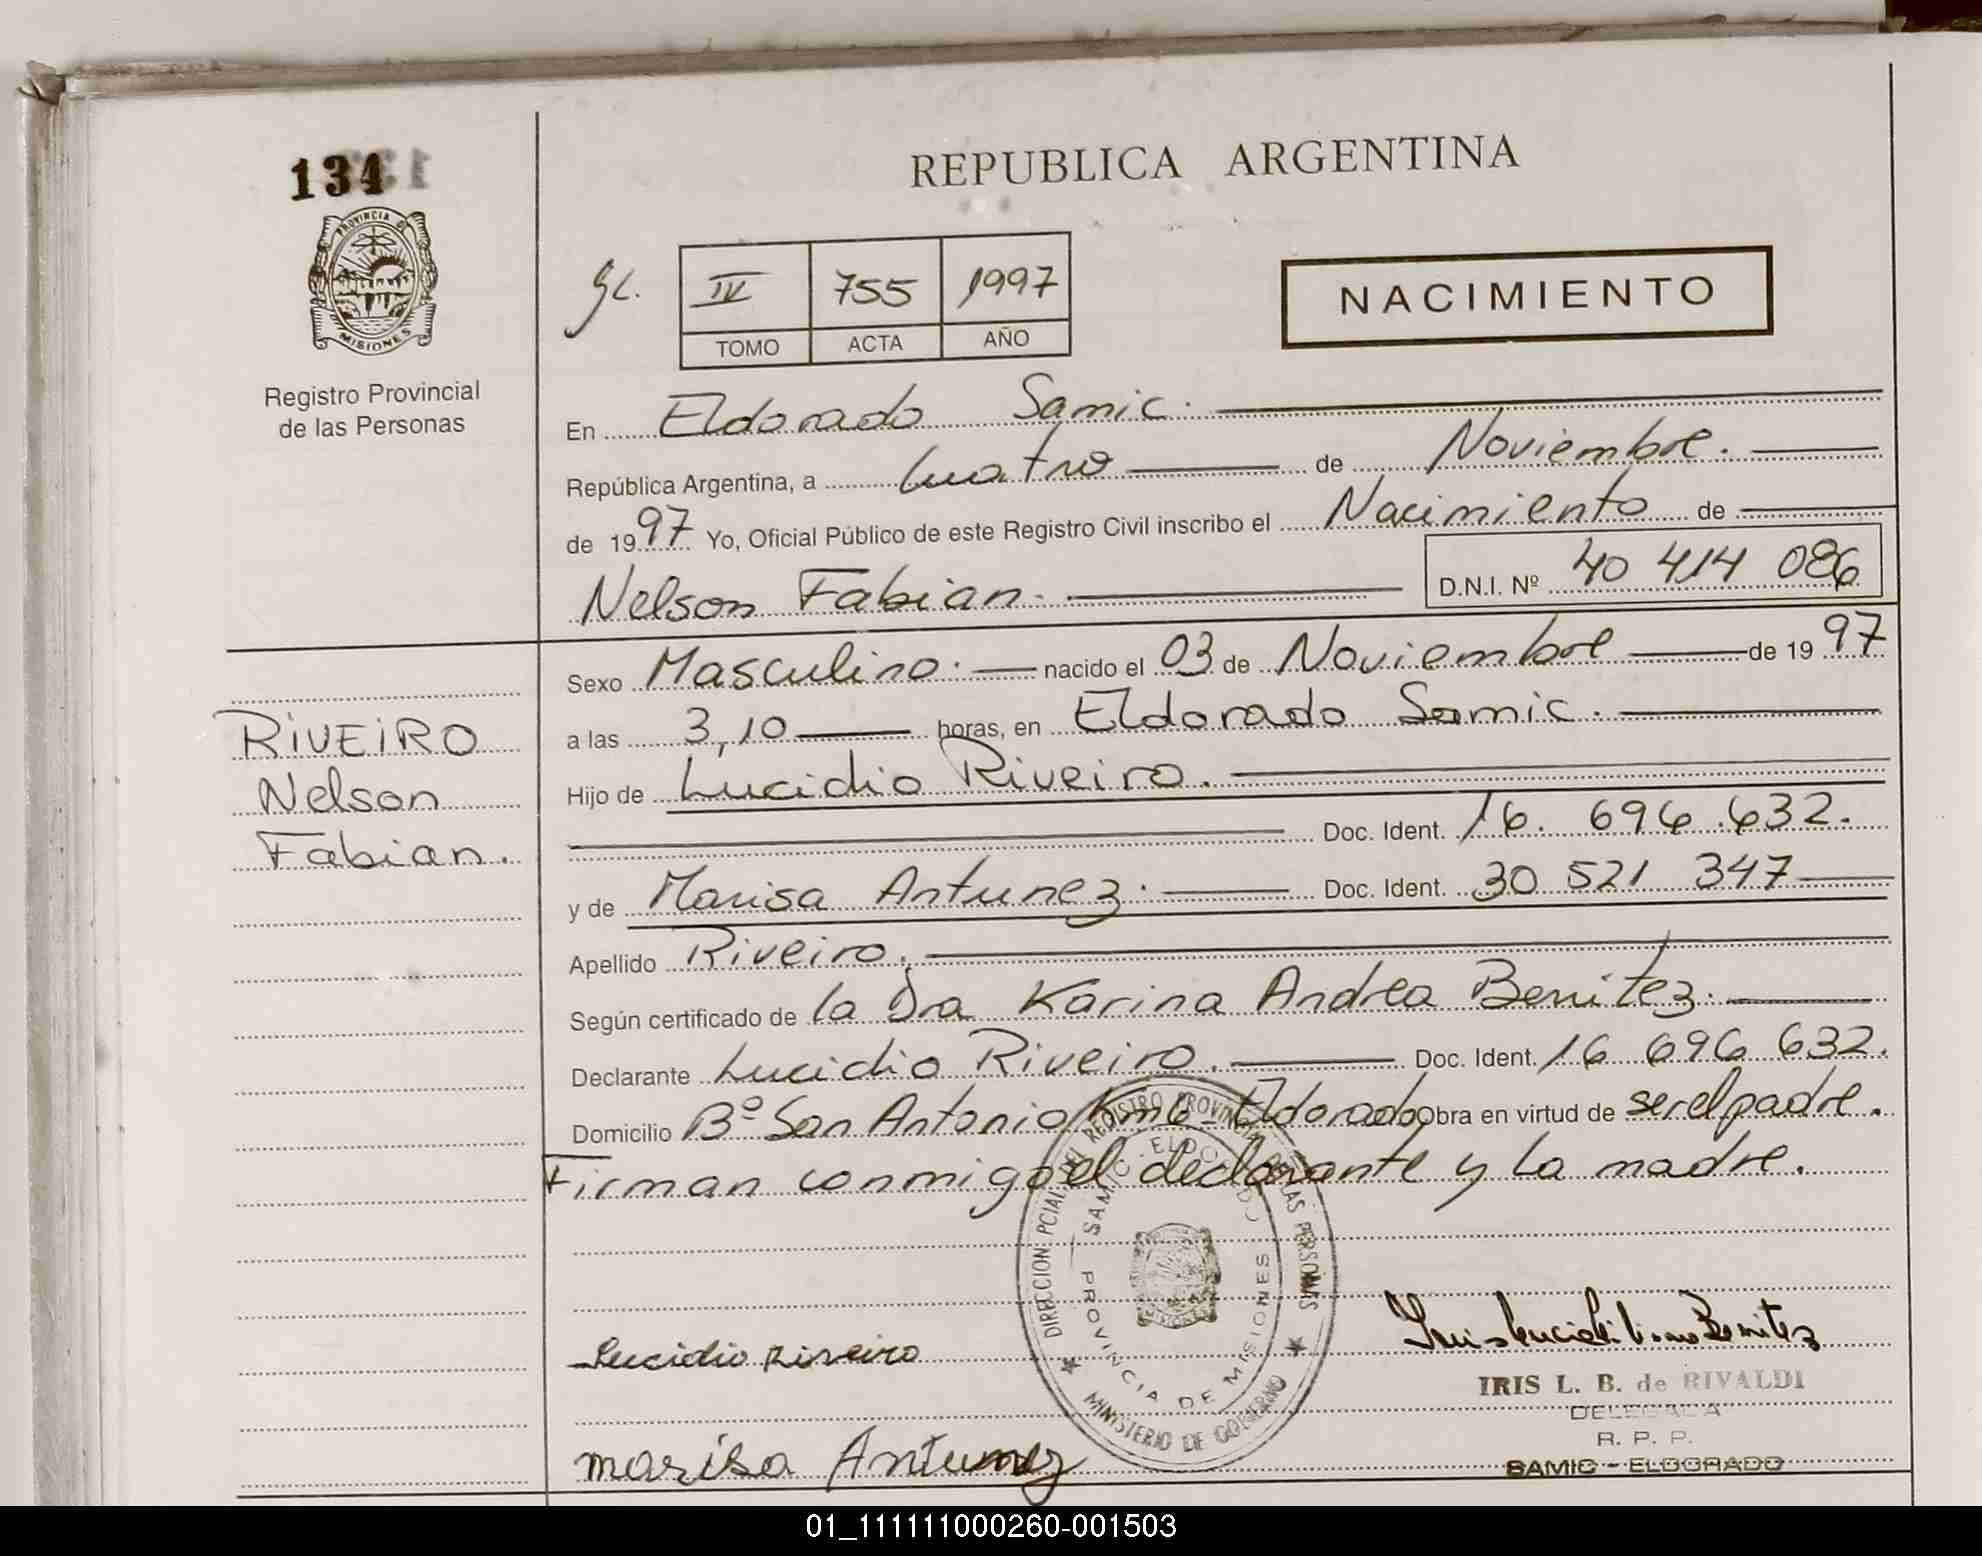 134
PROVINCIA DE
MISIONES
Registro Provincial
de las Personas
RIVEIRO
Nelson
Fabian.
REPUBLICA ARGENTINA
IV 755 1997
TOMO ACTA AÑO
NACIMIENTO
En Eldorado Samic.
República Argentina, a Cuatro de Noviembre.
de 1997 Yo, Oficial Público de este Registro Civil inscribo el Nacimiento de
Nelson Fabian. D.N.I. Nº 40 414 086
Sexo Masculino. nacido el 03 de Noviembre de 1997
a las 3,10 horas, en Eldorado Samic.
Hijo de Lucidio Riveiro.
Doc. Ident. 16. 696.632.
y de Marisa Antunez. Doc. Ident. 30 521 347
Apellido Riveiro.
Según certificado de la Dra Karina Andrea Benitez.
Declarante Lucidio Riveiro. Doc. Ident. 16 696 632.
Domicilio Bº San Antonio Km6 - Eldorado Obra en virtud de ser el padre.
Firman conmigo el declarante y la madre.
DIRECCION PCIAL. DEL REGISTRO PROVINCIAL DE LAS PERSONAS
SAMIC - ELDORADO
PROVINCIA DE MISIONES
MINISTERIO DE GOBIERNO
Lucidio Riveiro
marisa Antunez
IRIS L. B. de RIVALDI
DELEGADA
R. P. P.
SAMIC - ELDORADO
01_111111000260-001503